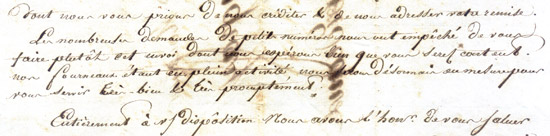 dont nous vous prions de nous créditer & de nous adresser votre remise.
Les nombreuse demandes de petit numeros nous ont empêché de vous
faire plutôt cet envoi dont nous espérons bien que vous serez content.
nos fourneaux étant en plein activité nous désormais en mesure pour
vous servir très bien & très promptement.
Entièrement à vs disposition Nous avons l'honr. de vous saluer